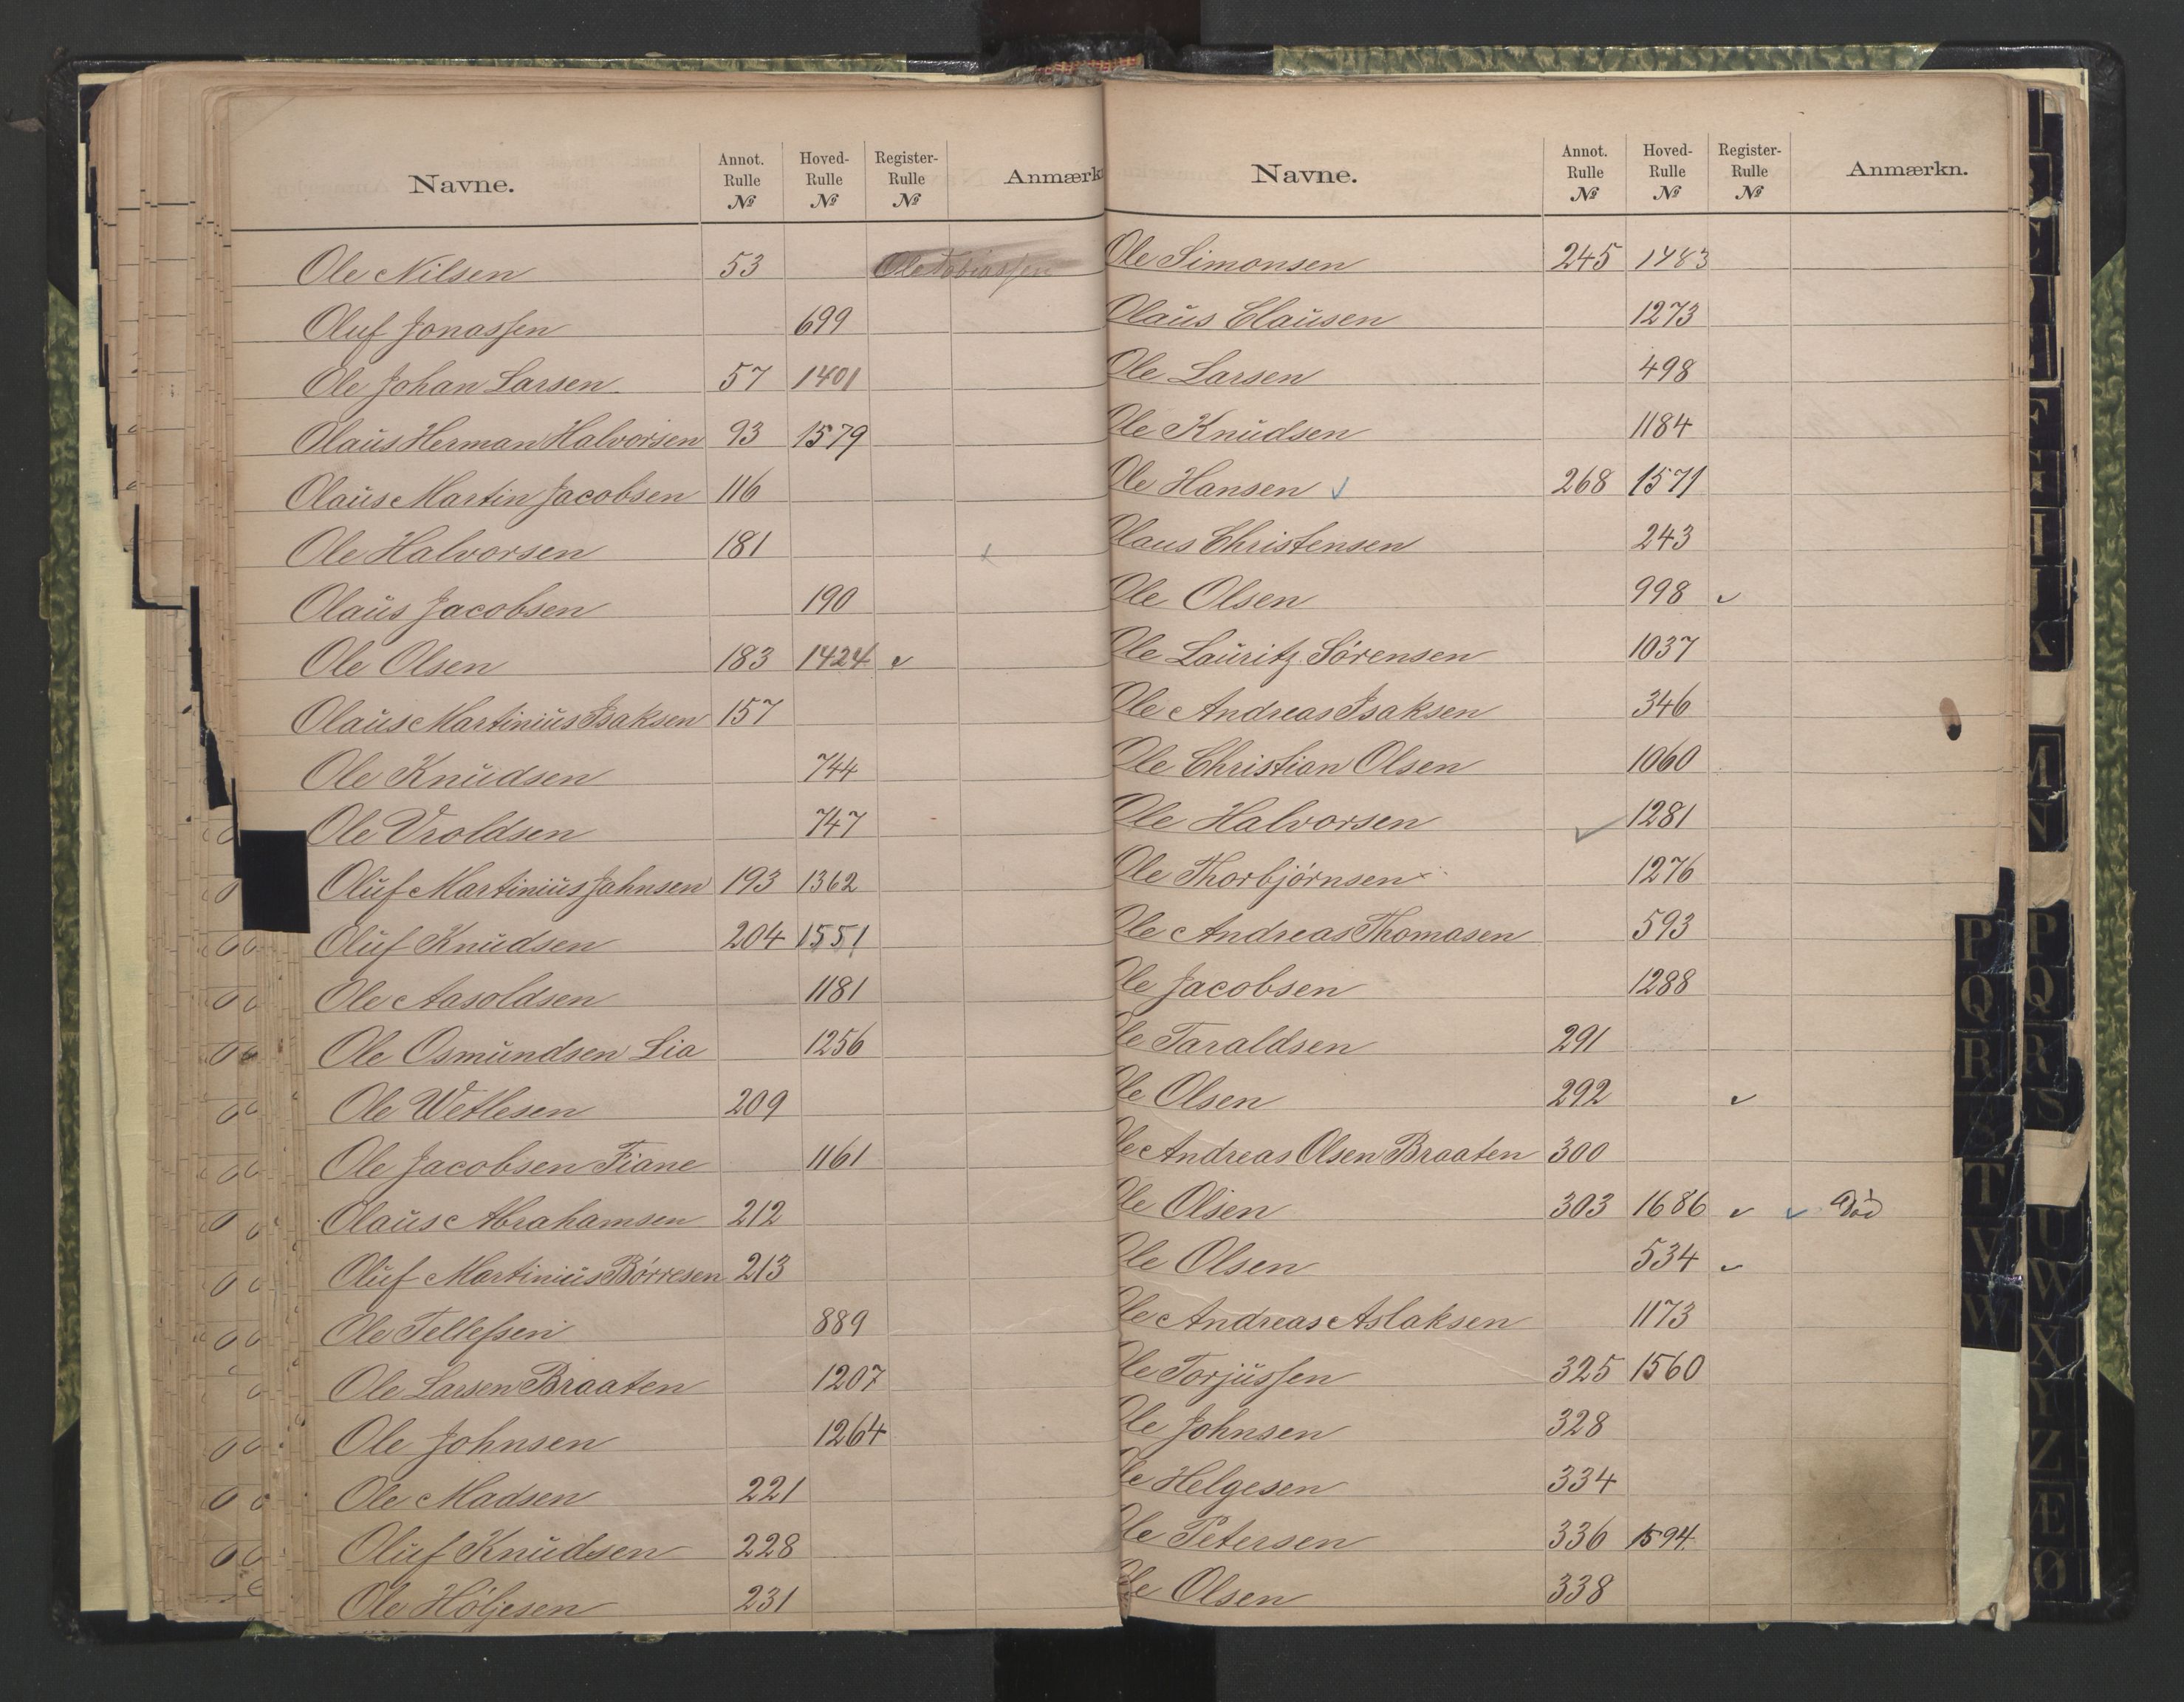 Navne. Annot. Rulle № Hoved- Rulle № Register- Rulle № Anmærk
Ole Nilsen 53 Ole Tobiassen
Oluf Jonassen 699
Ole Johan Larsen 57 1401
Olaus Herman Halvorsen 93 1579
Olaus Martin Jacobsen 116
Ole Halvorsen 181
Olaus Jacobsen 190
Ole Olsen 183 1424 ✓
Olaus Martinius Isaksen 157
Ole Knudsen 744
Ole Vroldsen 747
Oluf Martinius Jahnsen 193 1362
Oluf Knudsen 204 1551
Ole Aasoldsen 1181
Ole Osmundsen Lia 1256
Ole Wetlesen 209
Ole Jacobsen Fiane 1161
Olaus Abrahamsen 212
Oluf Martinius Börresen 213
Ole Tellefsen 889
Ole Larsen Braaten 1207
Ole Johnsen 1264
Ole Madsen 221
Oluf Knudsen 228
Ole Höljesen 231
Navne. Annot. Rulle № Hoved- Rulle № Register- Rulle № Anmærkn.
Ole Simonsen 245 1483
Olaus Clausen 1273
Ole Larsen 498
Ole Knudsen 1184
Ole Hansen ✓ 268 1571
Olaus Christensen 243
Ole Olsen 998 ✓
Ole Lauritz Sörensen 1037
Ole Andreas Isaksen 346
Ole Christian Olsen 1060
Ole Halvorsen ✓ 1281
Ole Thorbjörnsen 1276
Ole Andreas Thomasen 593
Ole Jacobsen 1288
Ole Taraldsen 291
Ole Olsen 292 ✓
Ole Andreas Olsen Braaten 300
Ole Olsen 303 1686 ✓ ✓ Död
Ole Olsen 534 ✓
Ole Andreas Aslaksen 1173
Ole Torjussen 325 1560
Ole Johnsen 328
Ole Helgesen 334
Ole Petersen 336 1594.
Ole Olsen 338
P
Q
R
S
T
V
W
C
E
F
G
H
I
K
M
N
P
Q
R
S
U
W
X
Y
Z
Æ
Ø